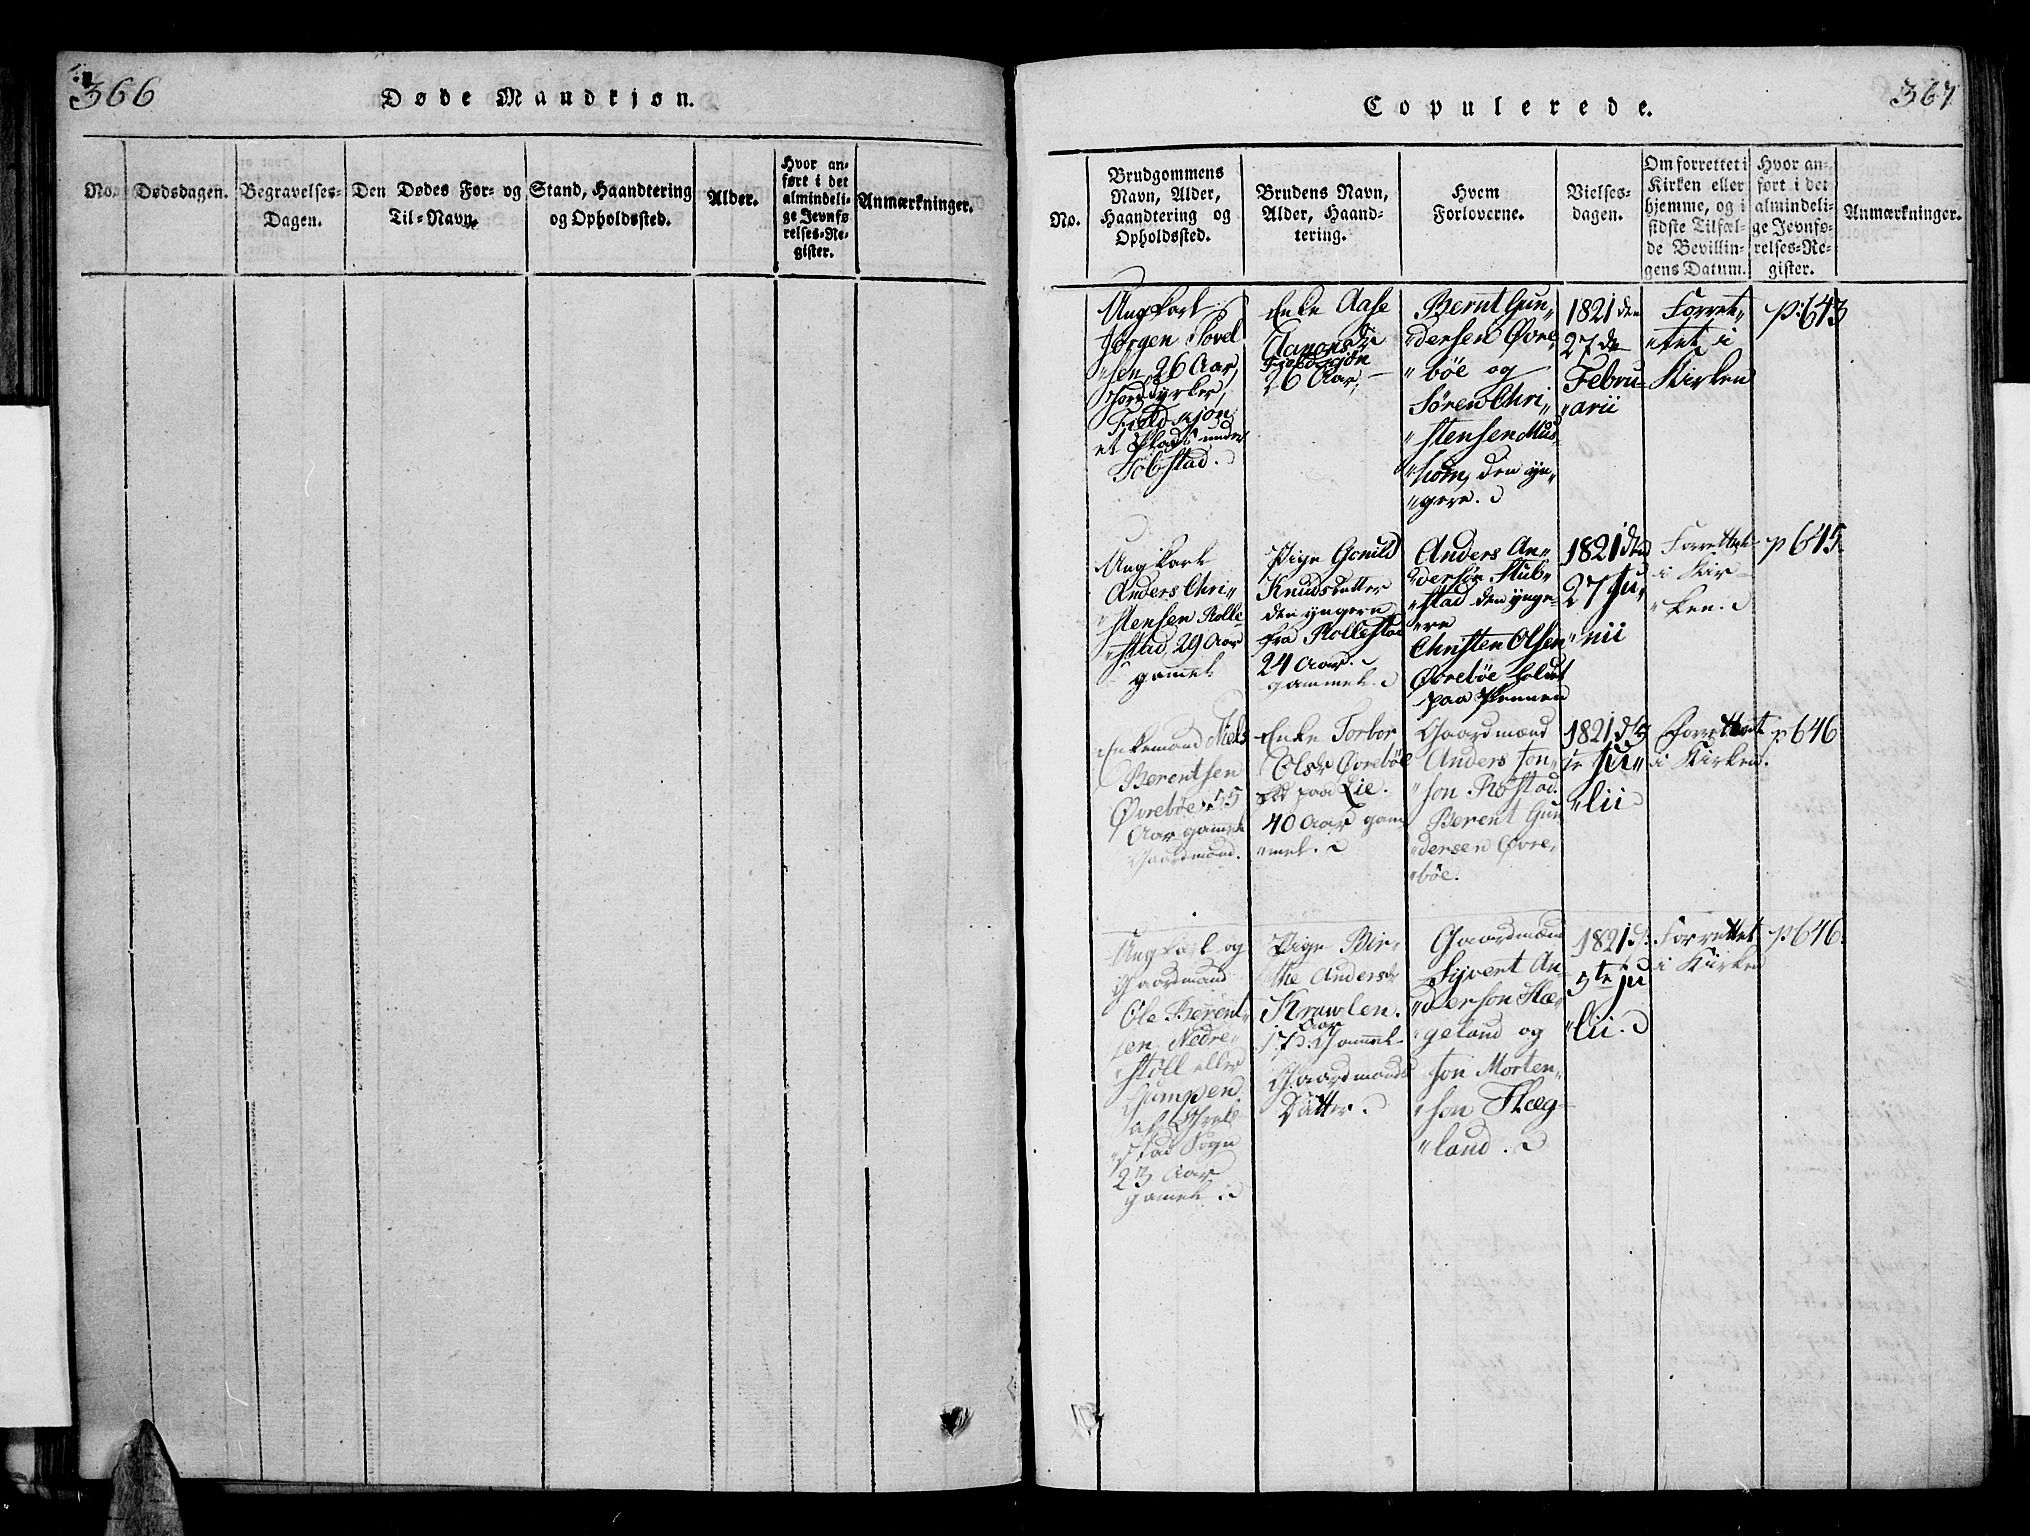 366
Døde Mandkjøn.
No.
Dødsdagen.
Begravelses-
Dagen.
Den Dødes For- og
Til-Navn.
Stand, Haandtering
og Opholdssted.
Alder.
Hvor an-
ført i det
almindeli-
ge Jevnfø-
relses-Re-
gister.
Anmærkninger.
Copulerede.
367
No.
Brudgommens
Navn, Alder,
Haandtering og
Opholdssted.
Brudens Navn,
Alder, Haand-
tering.
Hvem
Forloverne.
Vielses-
dagen.
Om forrettet i
Kirken eller
hjemme, og i
sidste Tilfæl-
de Bevillin-
gens Datum.
Hvor an-
ført i det
almindeli-
ge Jevnfø-
relses-Re-
gister.
Anmærkninger.
Ungkarl
Jørgen Povel
"sen, 26 Aar,
Jorddyrker,
Fieldskjøn
et Plads under
Tobstad.
Enke Aase
Fieldskjøn
26 Aar,
Bernt Gun"
"dersen Øvre"
"bøe og
Søren Chri"
"stensen Mus"
"hom, den yn"
"gere.
1821 den
27de
Febru"
"arii
Forret"
"tet i
Kirken
p:643
Ungkarl
Anders Chri"
"stensen Rolle"
"stad, 29 Aar
gamel
Pige Gonild
Knudsdatter
den yngere
fra Rollestad
24 Aar
gammel.
Anders An"
"dersøn Stub"
"stad den ynge"
"re
Christen Olsen
Øvrebøe holdt
paa Pennen
1821 den
27 Ju"
"nii
Forrettet
i Kir"
"ken.
p 645.
Enkemand Niels
Berentsen
Øvrebøe, 55
Aar gammel
Gaardmand.
Enke Torbor
Olsdr Øvrebøe
paa Lie.
40 Aar gam"
"mel.
Gaardmænd
Anders Jon"
"son Røstad.
Berent Gun
"dersen Øvre"
"bøe.
1821 d. 5
te Ju"
"lii
Forrettet
i Kirken.
p 646
Ungkarl og
Gaardmand
Ole Berent"
"sen Nedre"
"støll eller
Gumpen
af
stad Sogn
23 Aar
gamel.
Pige Bir"
"the Andersdr
Krowlen.
17 Aar Gammel
Gaardmands
Datter.
Gaardmænd
Syvert An"
"derson Hæ"
"geland og
Jon Morten"
"son Hæg"
"land.
1821 d.
5te Ju
"lii.
Forrettet
i Kirken
p 646.